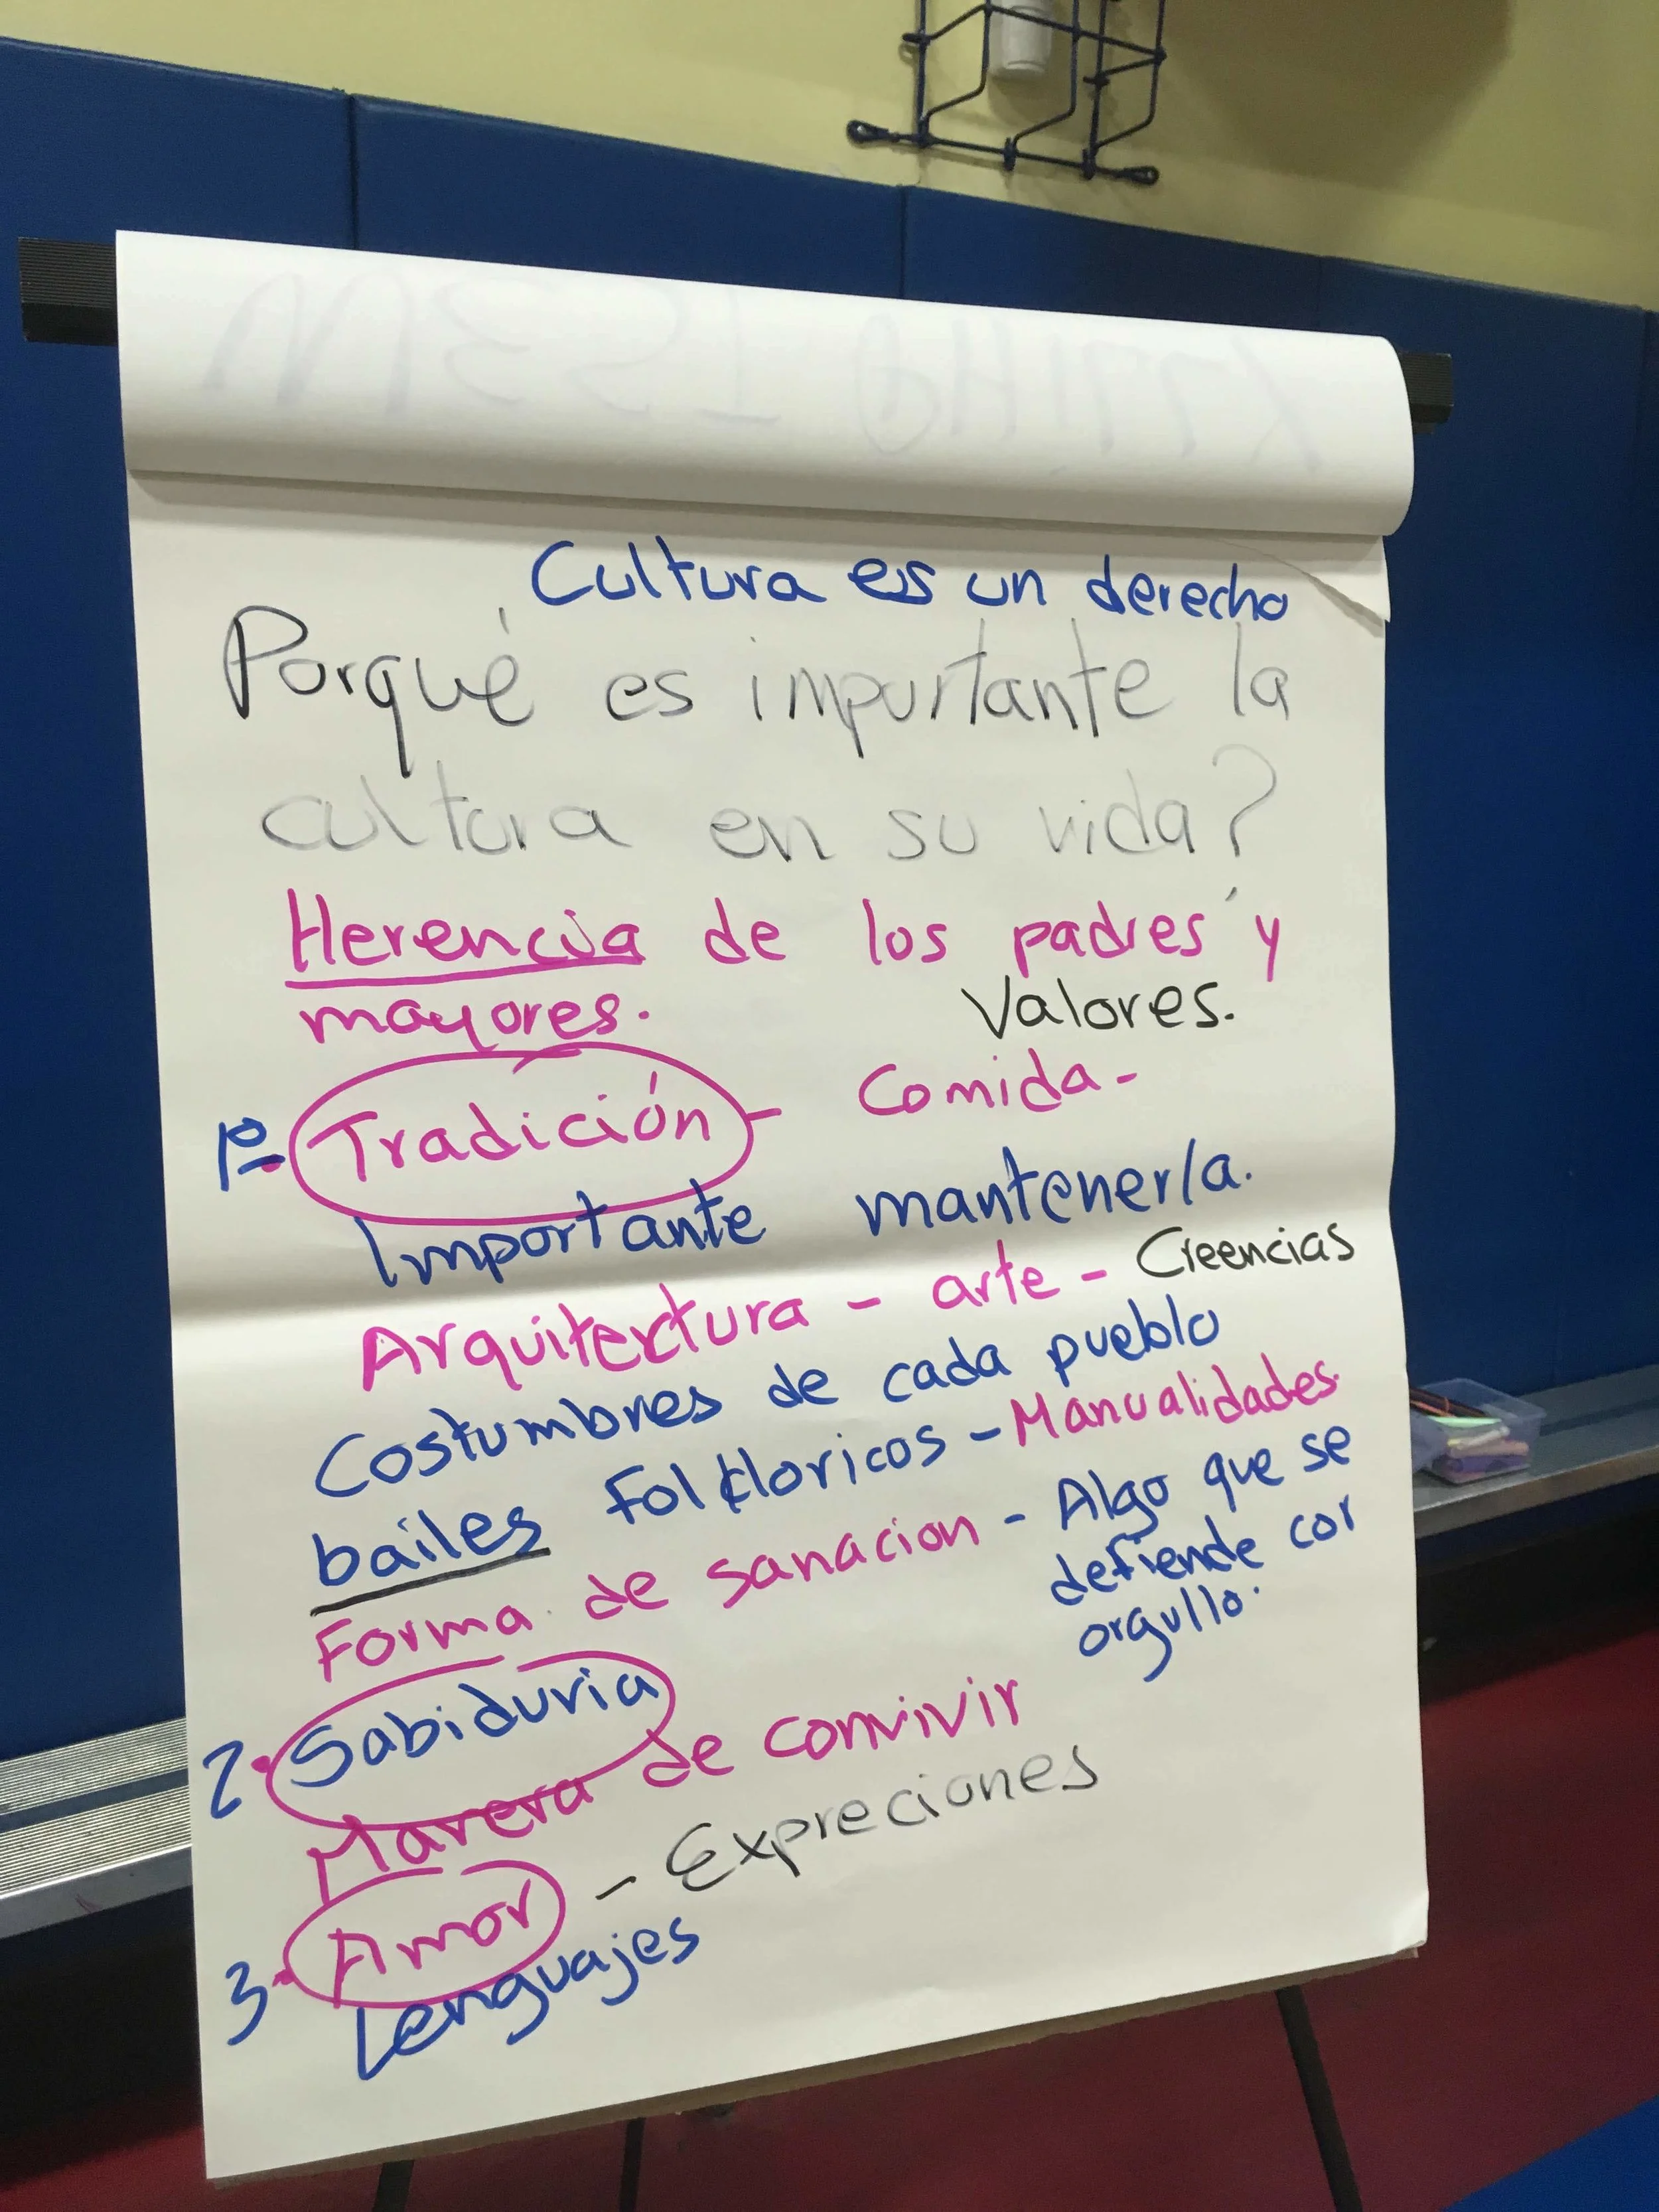 Cultura es un derecho
Porqué es importante la
cultura en su vida?
Herencia de los padres y
mayores. Valores.
1º- Tradición - Comida -
Importante mantenerla.
Arquitectura - arte - Creencias
Costumbres de cada pueblo
bailes Folkloricos - Manualidades.
Forma de sanacion - Algo que se
defiende con
orgullo.
2. Sabiduria
Manera de convivir
3- Amor - Expreciones
Lenguajes